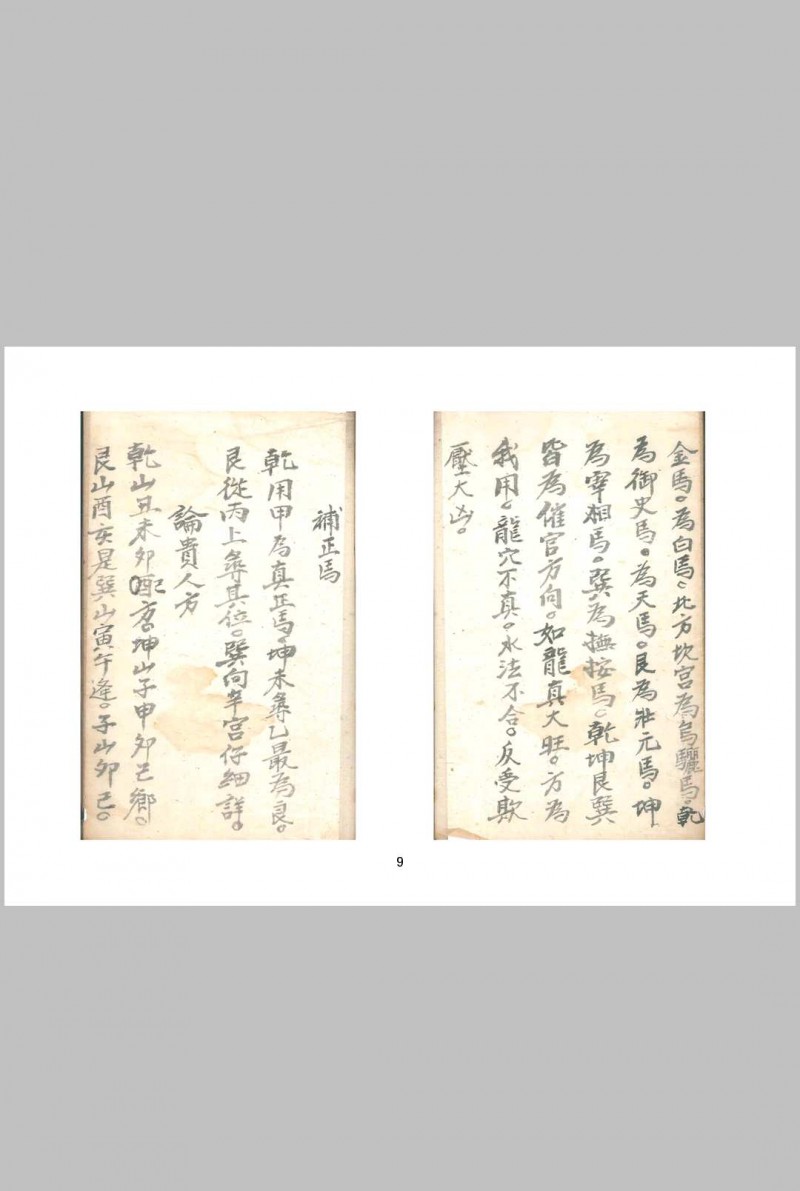 金馬。為白馬。北方坎宮為烏驪馬。乾
為御史馬。為天馬。艮為狀元馬。坤
為宰相馬。巽為撫按馬。乾坤艮巽
皆為催官方向。如龍真大旺。方為
我用。龍穴不真。水法不合。反受欺
壓大凶。
補正馬
乾用甲為真正馬。坤未尋乙最為良。
艮從丙上尋其位。巽向辛宮仔細詳。
論貴人方
乾山丑未卯配方。坤山子申卯己鄉。
艮山酉亥是巽山寅午逢。子山卯己。
9